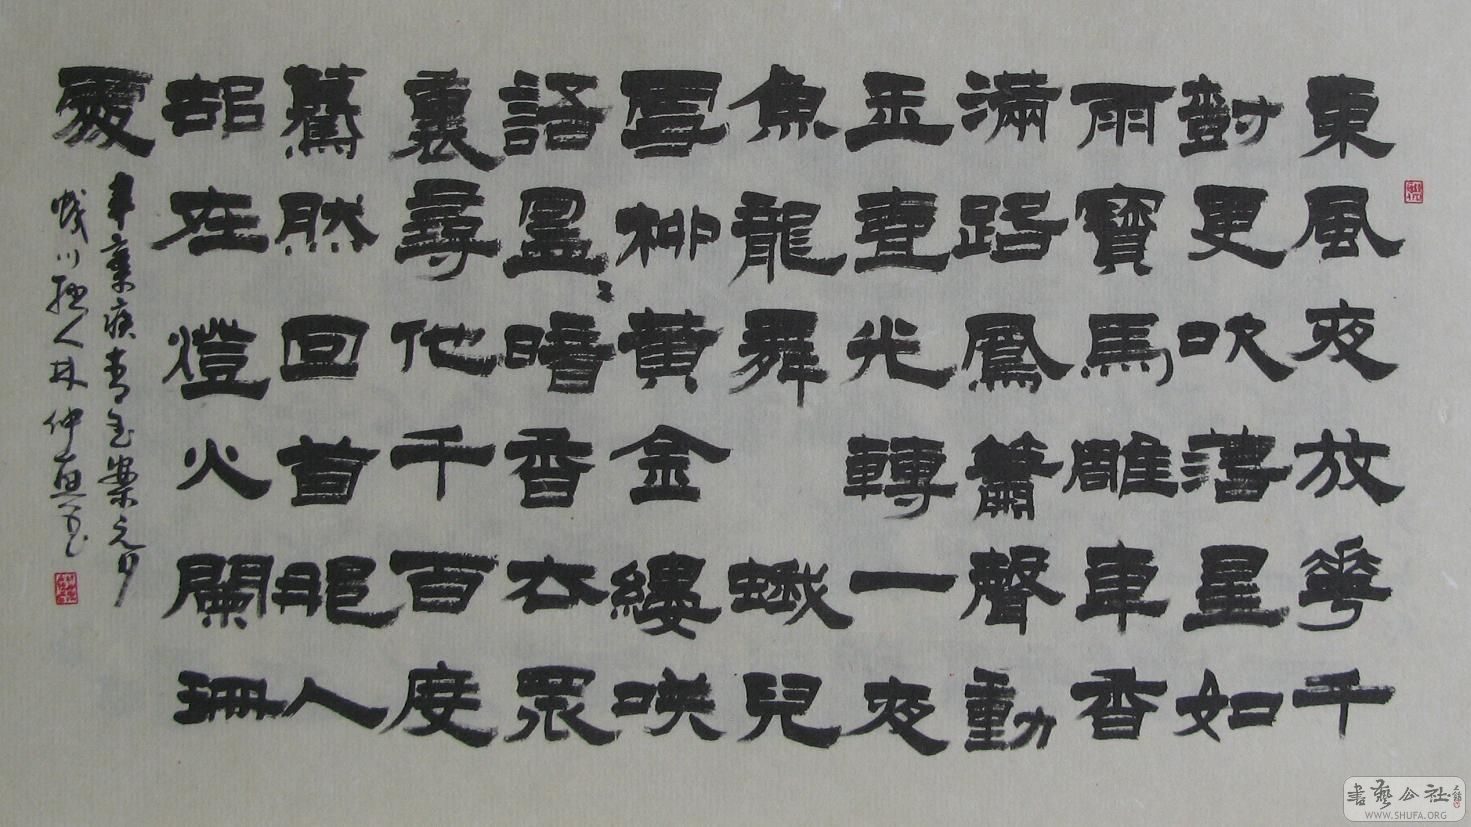 東風夜放華千
對更吹落星如
雨寶馬雕車香
滿路鳳簫聲動
玉壺光轉一夜
魚龍舞 蛾兒
雪柳黃金縷咲
語盈〻暗香去眾
裏尋他千百度
驀然回首那人
卻在燈火闌珊
處
辛棄疾青玉案元夕
川 人林仲興书
書藝公社
WWW.SHUFA.ORG